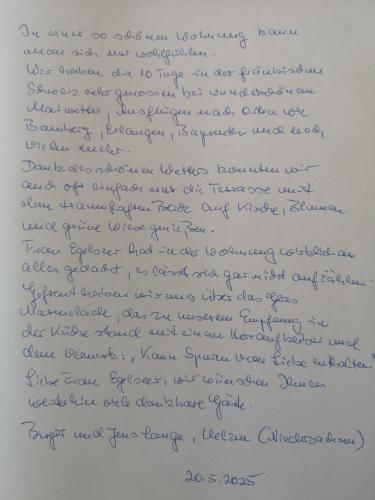 In einer so schönen Wohnung kann
man sich nur wohlfühlen.
Wir haben die 10 Tage in der fränkischen
Schweiz sehr genossen bei wunderschönem
Maiwetter, Ausflügen nach Orten wie
Bamberg, Erlangen, Bayreuth und noch
vielen mehr.
Dank des schönen Wetters konnten wir
auch oft einfach nur die Terrasse mit
dem traumhaften Blick auf Kirche, Blumen
und grüne Wiese genießen.
Frau Egelseer hat in der Wohnung wirklich an
alles gedacht, es lässt sich gar nicht aufzählen.
Gefreut haben wir uns über das Glas
Marmelade, das zu unserem Empfang in
der Küche stand mit einem Herzaufkleber und
dem Vermerk: „Kann Spuren von Liebe enthalten"
Liebe Frau Egelseer, wir wünschen Ihnen
weiterhin viele dankbare Gäste.
Birgit und Jens Lange, Uelzen (Niedersachsen)
20.5.2025